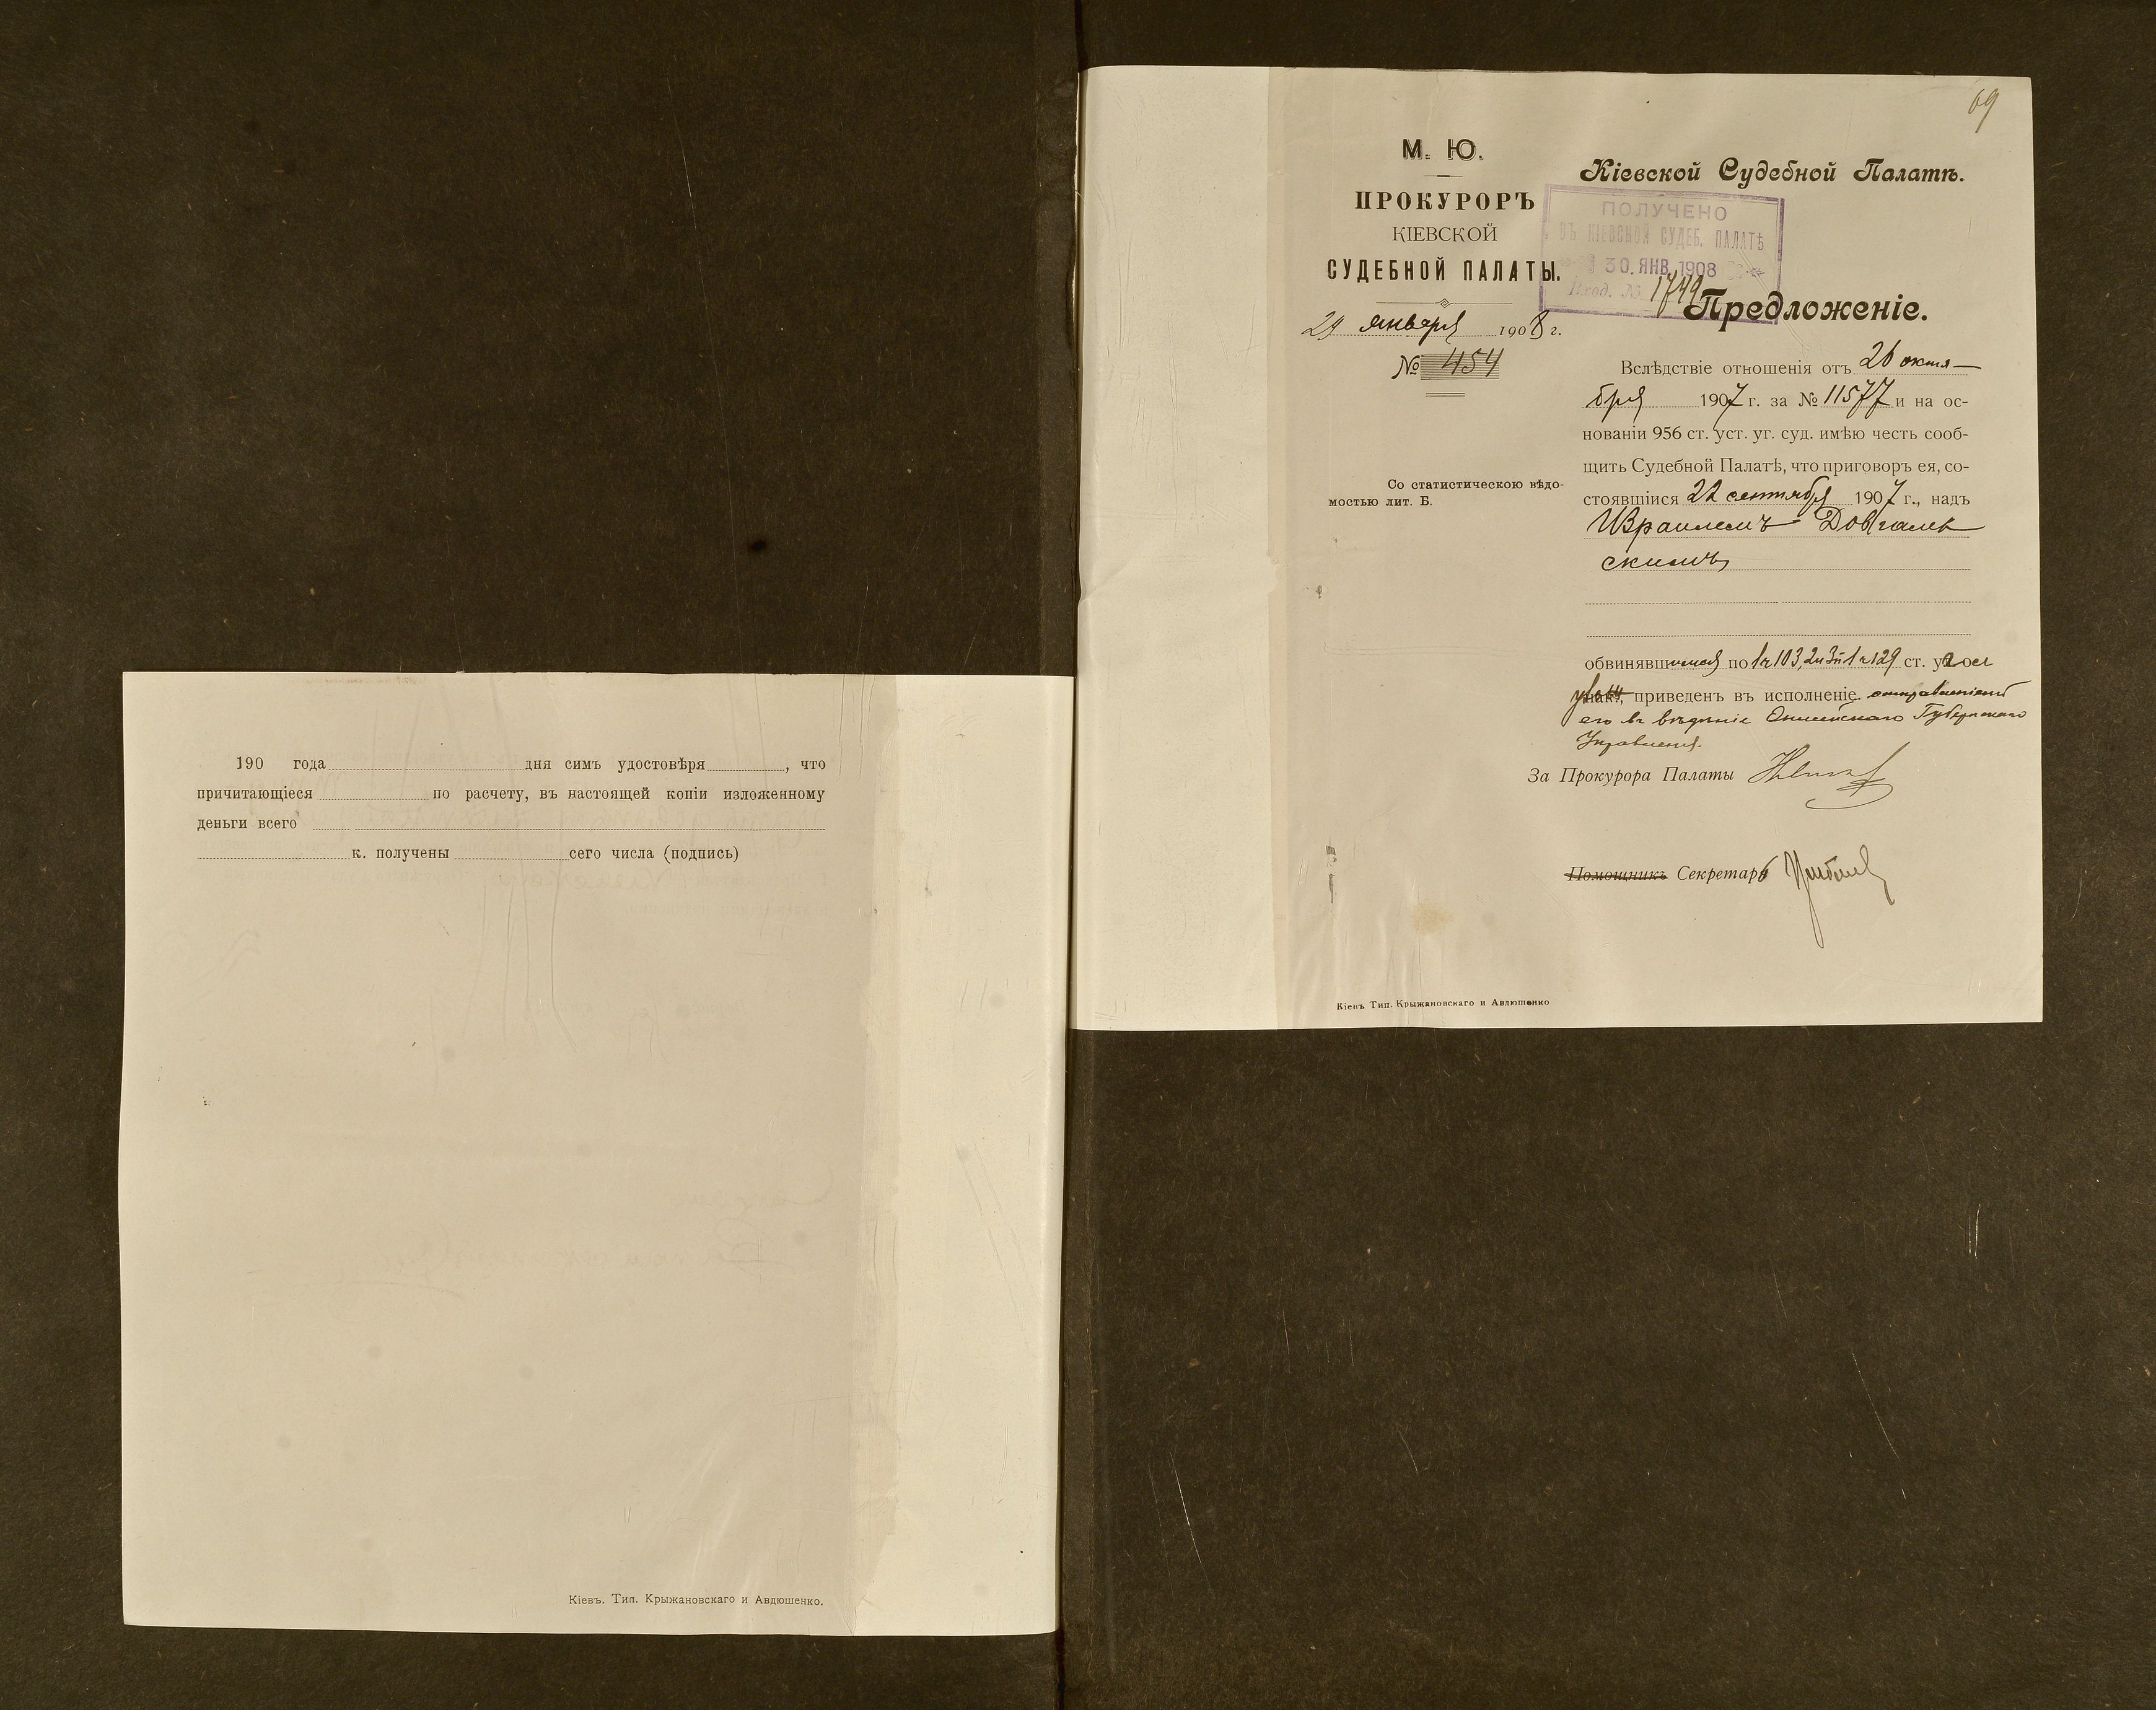 190 года дня симъ удостовѣря , что
причитающіеся по расчету, въ настоящей копіи изложенному
деньги всего
к. получены сего числа (подпись)
Кіевъ. Тип. Крыжановскаго и Авдюшенко.
69
М. Ю.
ПРОКУРОРЪ
КІЕВСКОЙ
СУДЕБНОЙ ПАЛАТЫ.
29 января 1908 г.
№ 454
Со статистическою вѣдо-
мостью лит. Б.
Кіевской Судебной Палатѣ.
ПОЛУЧЕНО
ВЪ КІЕВСКОЙ СУДЕБ. ПАЛАТѢ
30. ЯНВ. 1908
Вход. № 1749
Предложеніе.
Вслѣдствіе отношенія отъ 26 октя-
бря 1907 г. за № 11577 и на ос-
нованіи 956 ст. уст. уг. суд. имѣю честь сооб-
щить Судебной Палатѣ, что приговоръ ея, со-
стоявшійся 22 сентября 1907 г., надъ
Израилемъ Довгалев
скимъ
обвинявшимся по 1 ч 103, 2 и 3 п 1 ч 129 ст. уг
приведенъ въ исполненіе отправленіемъ
его въ вѣдѣніе Губернскаго
Управленія.
За Прокурора Палаты
Помощникъ Секретарь
Кіевъ Тип. Крыжановскаго и Авдюшенко